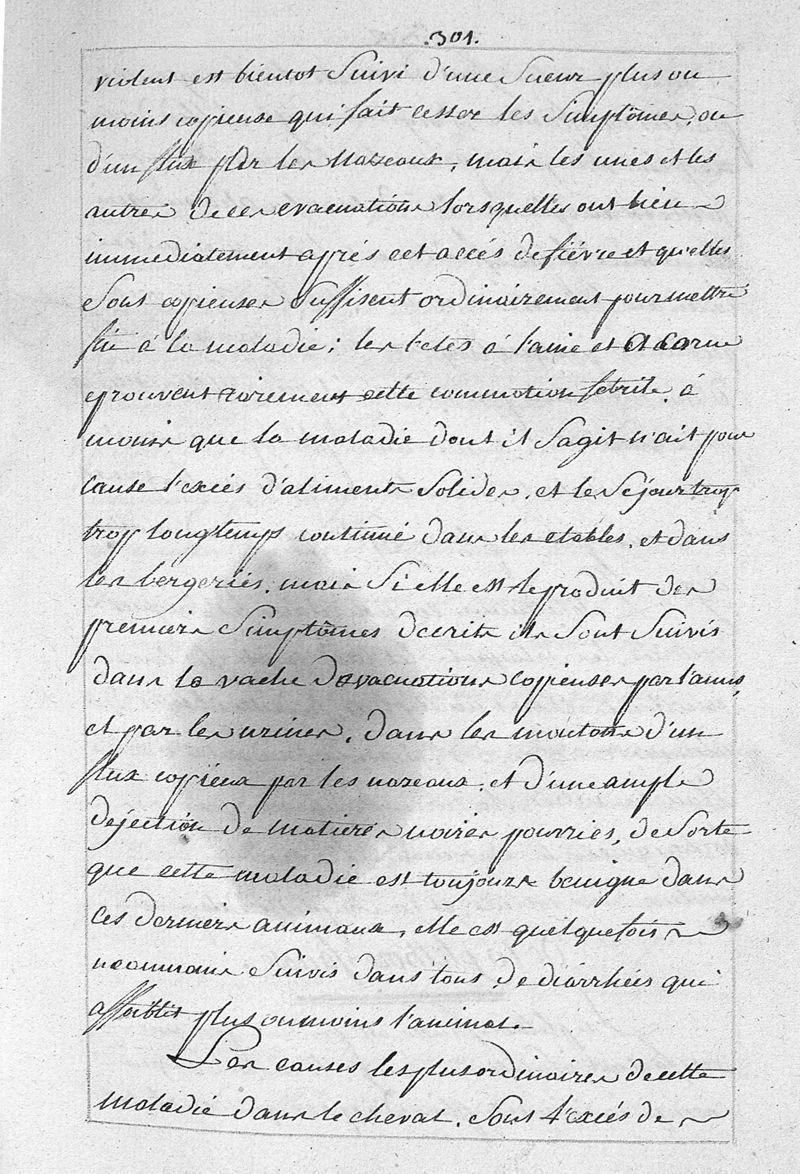 .301.
violent est bientot Suivi d'une Sueur plus ou
moins copieuse qui fait cesser les Simptômes, ou
d'un flux par les Nazeaux, mais les unes et les
autres de ces evacuations lorsquelles ont lieu
immediatement aprés cet accés de fiévre et quelles
Sont copieuses Suffisent ordinairement pour mettre
fin a la maladie; les betes á laine et a corne
eprouvent rarement cette commotion febrile, á
moins que la maladie dont il Sagit n'ait pour
cause l'excés d'aliments Solides, et le Séjour trop
trop longtemps continué dans les etables, et dans
les bergeriés, mais Si elle est le produit des
premiers Simptômes decrits ils Sont Suivis
dans la vache devacuations copieuses par l'anus,
et par les urines, dans les moutons d'un
flux copieux par les nazeaux, et d'une ample
dejection de matieres noires pourries, de Sorte
que cette maladie est toujours benigne dans
ces derniers animaux, elle est quelquefois
neanmoins Suivis dans tous de diarrhées qui
affoiblit plus ou moins l'animal.
Les causes les plus ordinaires de cette
maladie dans le cheval, Sont l'excés de